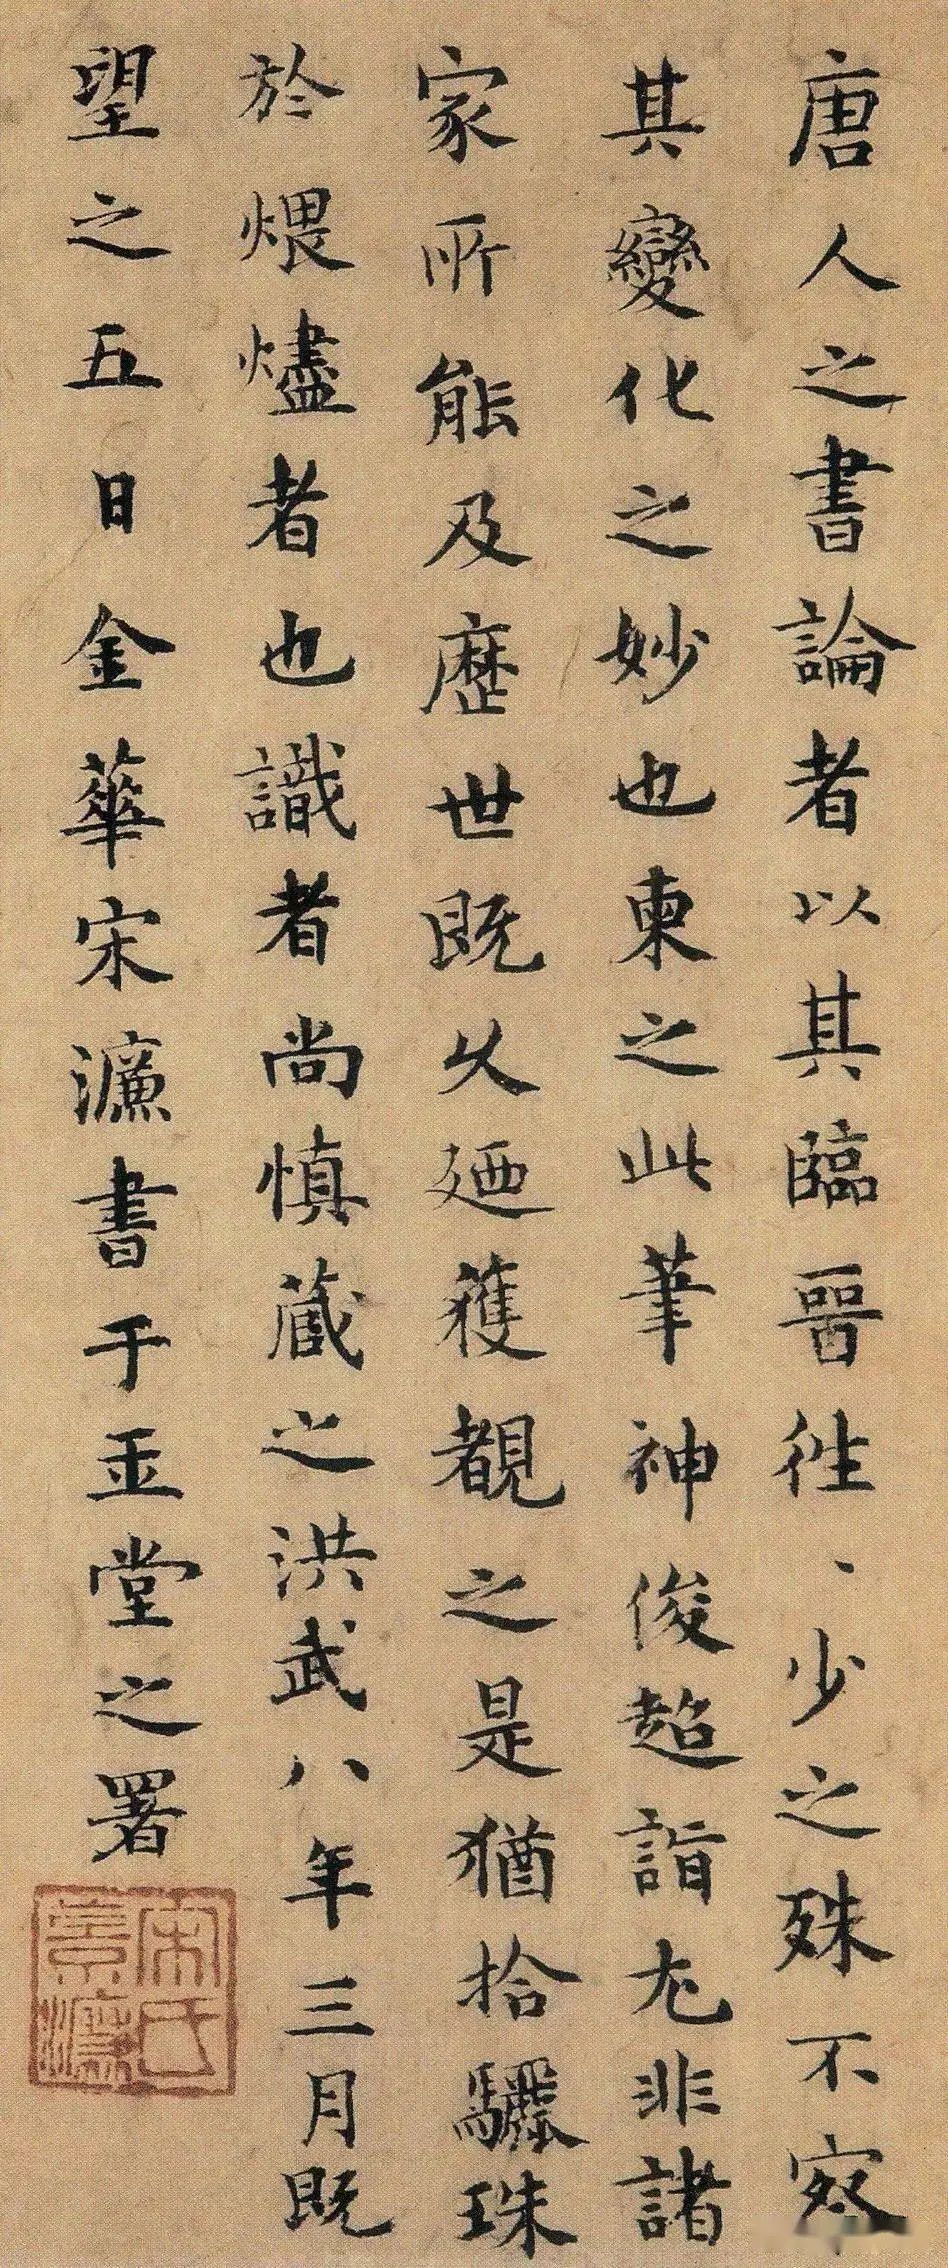 唐人之書論者以其臨晉徃、少之殊不察
其變化之妙也柬之此筆神俊超詣尤非諸
家所能及歷世既久廼獲覩之是猶拾驪珠
於煨燼者也識者尚慎藏之洪武八年三月既
望之五日金華宋濂書于玉堂之署
宋氏景濂